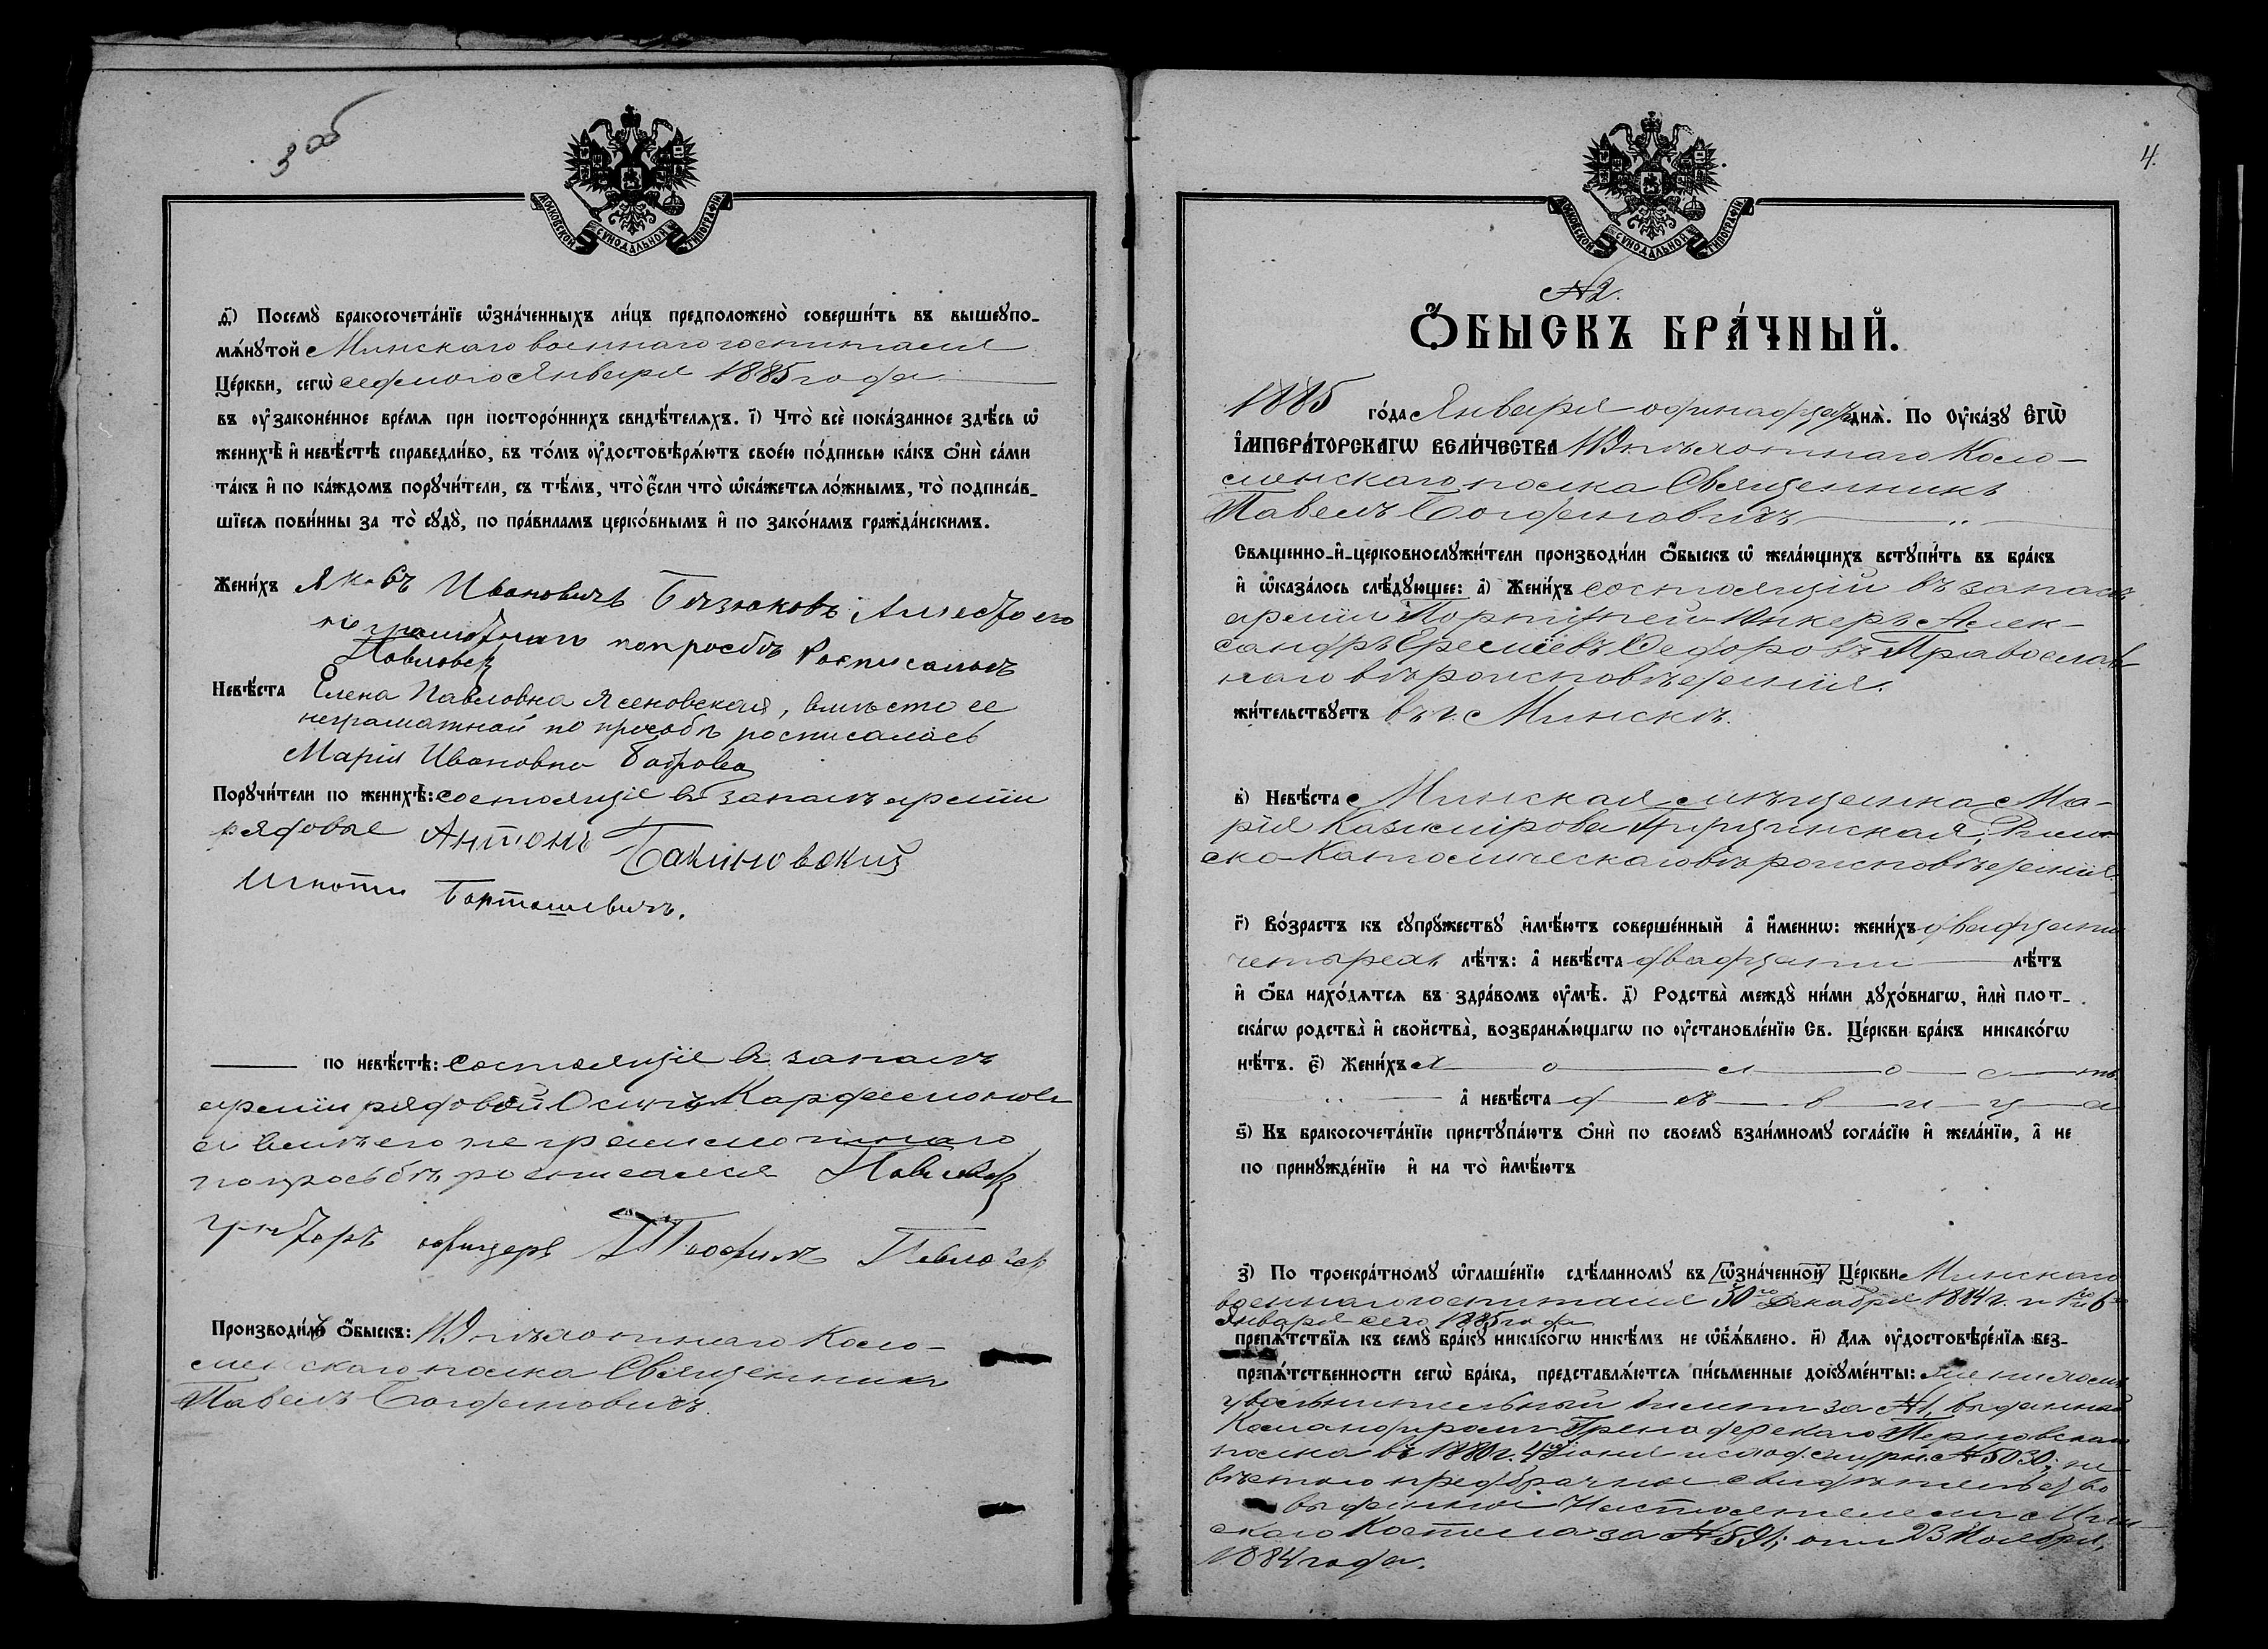 3 об
МОСКОВСКОЙ СѴНОДАЛЬНОЙ ТИПОГРАФІИ
ѳ҃) Посемꙋ̀ бракосочета́нїе ѡ҆зна́ченныхъ ли́цъ предположено̀ соверши́ть въ вышеꙋпо-
мѧ́нꙋтой Минскаго военнаго госпиталя
Це́ркви, сегѡ̀ седмого Января 1885 года
въ ᲂу҆законе́нное вре́мѧ при посторо́ннихъ свидѣ́телѧхъ. і҃) Что̀ всѐ пока́занное здѣ́сь ѡ҆
женихѣ̀ и҆ невѣ́стѣ справедли́во, въ то́мъ ᲂу҆достовѣрѧ́ютъ свое́ю по́дписью ка́къ ѻ҆нѝ са́ми
та́къ и҆ по ка́ждомъ порꙋчи́тели, съ тѣ́мъ, что̀ є҆́сли что̀ ѡ҆ка́жетсѧ ло́жнымъ, то̀ подписа́в-
шїесѧ пови́нны за то̀ сꙋдꙋ̀, по пра́виламъ церко́внымъ и҆ по зако́намъ гражда́нскимъ.
Жени́хъ Яковъ Ивановичъ Бязюковъ А место его
не грамотнаго по просбѣ Росписался
Невѣ́ста Елена Павловна Ясеновская, вместо ее
неграматной по просбѣ росписалась
Марія Ивановна Боброва
Порꙋчи́тели по женихѣ̀: состоящіе въ запасѣ арміи
рядовые Антонъ Бакиновскій
Игнати Борташевичъ.
по невѣ́стѣ: Состоящіе въ запасѣ
арміи рядовой Осипъ
а вмѣ его не грамотнаго
по просьбѣ росписался
унторъ офицеръ Теофилъ
Производи́лъ ѻ҆́быскъ: 119 пѣхотнаго Коло-
менскаго полка Священникъ
Павелъ Богдановичъ.
4.
МОСКОВСКОЙ СѴНОДАЛЬНОЙ ТИПОГРАФІИ
№ 2.
Ѻ҆́БЫСКЪ БРА́ЧНЫЙ.
1885 го́да Января одинадцать днѧ̀. По Оу҆ка́зꙋ Є҆ГѠ̀
І҆МПЕРА́ТОРСКАГѠ ВЕЛИ́ЧЕСТВА 119 пѣхотнаго Коло-
менскаго полка Священникъ
Павелъ Богдановичъ
Свѧщенно-и҆-церковнослꙋжи́тели производи́ли ѻ҆́быскъ ѡ҆ жела́ющихъ встꙋпи́ть въ бра́къ
и҆ ѡ҆каза́лось слѣ́дꙋющее: а҃) Жени́хъ состоящій въ запасѣ
арміи Портупей-Юнкеръ Алек-
сандръ Еремѣевъ Федоровъ Православ
наго вѣроисповѣденія.
жи́тельствꙋетъ въ г. Минскѣ.
в҃) Невѣ́ста Минская мѣщанка Ма-
рія Казимірова Римс
ско-Католическаго вѣроисповѣденія.
г҃) Во́зрастъ къ сꙋпрꙋ́жествꙋ и҆мѣ́ютъ соверше́нный а҆̀ и҆́меннѡ: жени́хъ двадцати
четырехъ лѣ́тъ: а҆̀ невѣ́ста двадцати лѣ́тъ
и҆ ѻ҆́ба нахо́дѧтсѧ въ здра́вомъ ᲂу҆мѣ̀. д҃) Родства̀ междꙋ̀ ни́ми дꙋхо́внагѡ, и҆лѝ плот-
ска́гѡ родства̀ и҆ сво́йства̀, возбранѧ́ющагѡ по ᲂу҆становле́нїю Св. Це́ркви бра́къ никако́гѡ
нѣ́тъ. є҃) Жени́хъ х о л о с тъ
а҆̀ невѣ́ста д ѣ в и ц а
ѕ҃) Къ бракосочета́нїю пристꙋпа́ютъ ѻ҆нѝ по своемꙋ̀ взаи́мномꙋ согла́сїю и҆ жела́нїю, а҆̀ не
по принꙋжде́нїю и҆ на то̀ и҆мѣ́ютъ
з҃) По троекра́тномꙋ ѡ҆глаше́нїю сдѣ́ланномꙋ въ ѡ҆зна́ченной Це́ркви Минскаго
военнаго госпиталя 30го Декабря 1884 г. и 1го и 6го
Января сего 1885 года
препѧ́тствїѧ къ семꙋ̀ бра́кꙋ никако́гѡ никѣ́мъ не ѡ҆б̾ѧ́влено. и҃) Длѧ ᲂу҆достовѣре́нїѧ без-
препѧ́тственности сегѡ̀ бра́ка, представлѧ́ютсѧ пи́сьменные докꙋме́нты: женихомъ
увольнительный билетъ за № 1, выданный
Командиромъ Гренадерскаго Перновскаго
полка въ 1880 г. 4 Іюня и № 5030; не
вѣстою предбрачное свидѣтельство
выданное Настоятелемъ Мин
скаго Костела за № 591; отъ 23 Ноября,
1884 года.